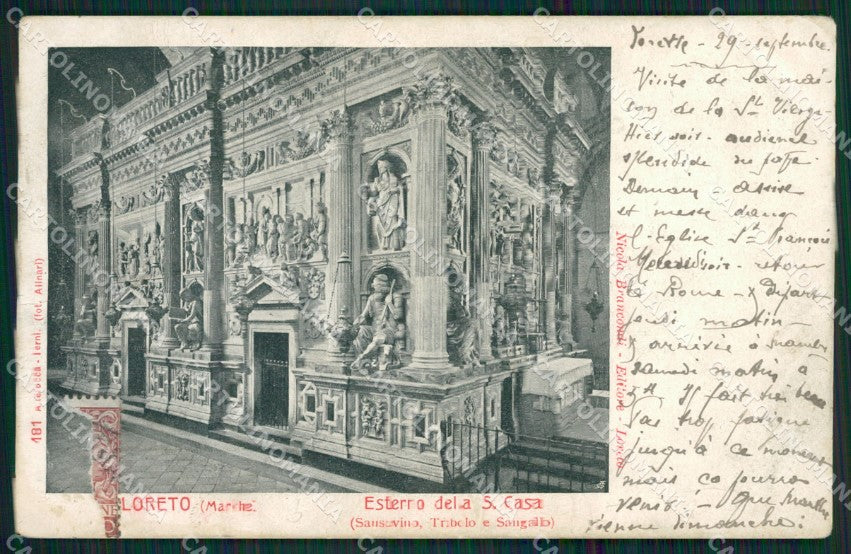 Lorette - 29 septembre.
Visite de la mai-
son de la Ste Vierge
Hier soir - audience
splendide du pape.
Demain
et messe dans
l'Eglise St François
soir retour
à Rome & départ
jeudi matin
& arrivée à
samedi matin à
Il fait très beau
Pas trop fatiguée
jusqu'à ce moment
mais ça pourra
venir! - Que
vienne dimanche!
Nicola Brancondi - Editore - Loreto
181 Alterocca - Terni. (fot. Alinari)
LORETO (Marche)
Esterno della S. Casa
(Sansovino, Tribolo e Sangallo)
CARTOLINOMANIA